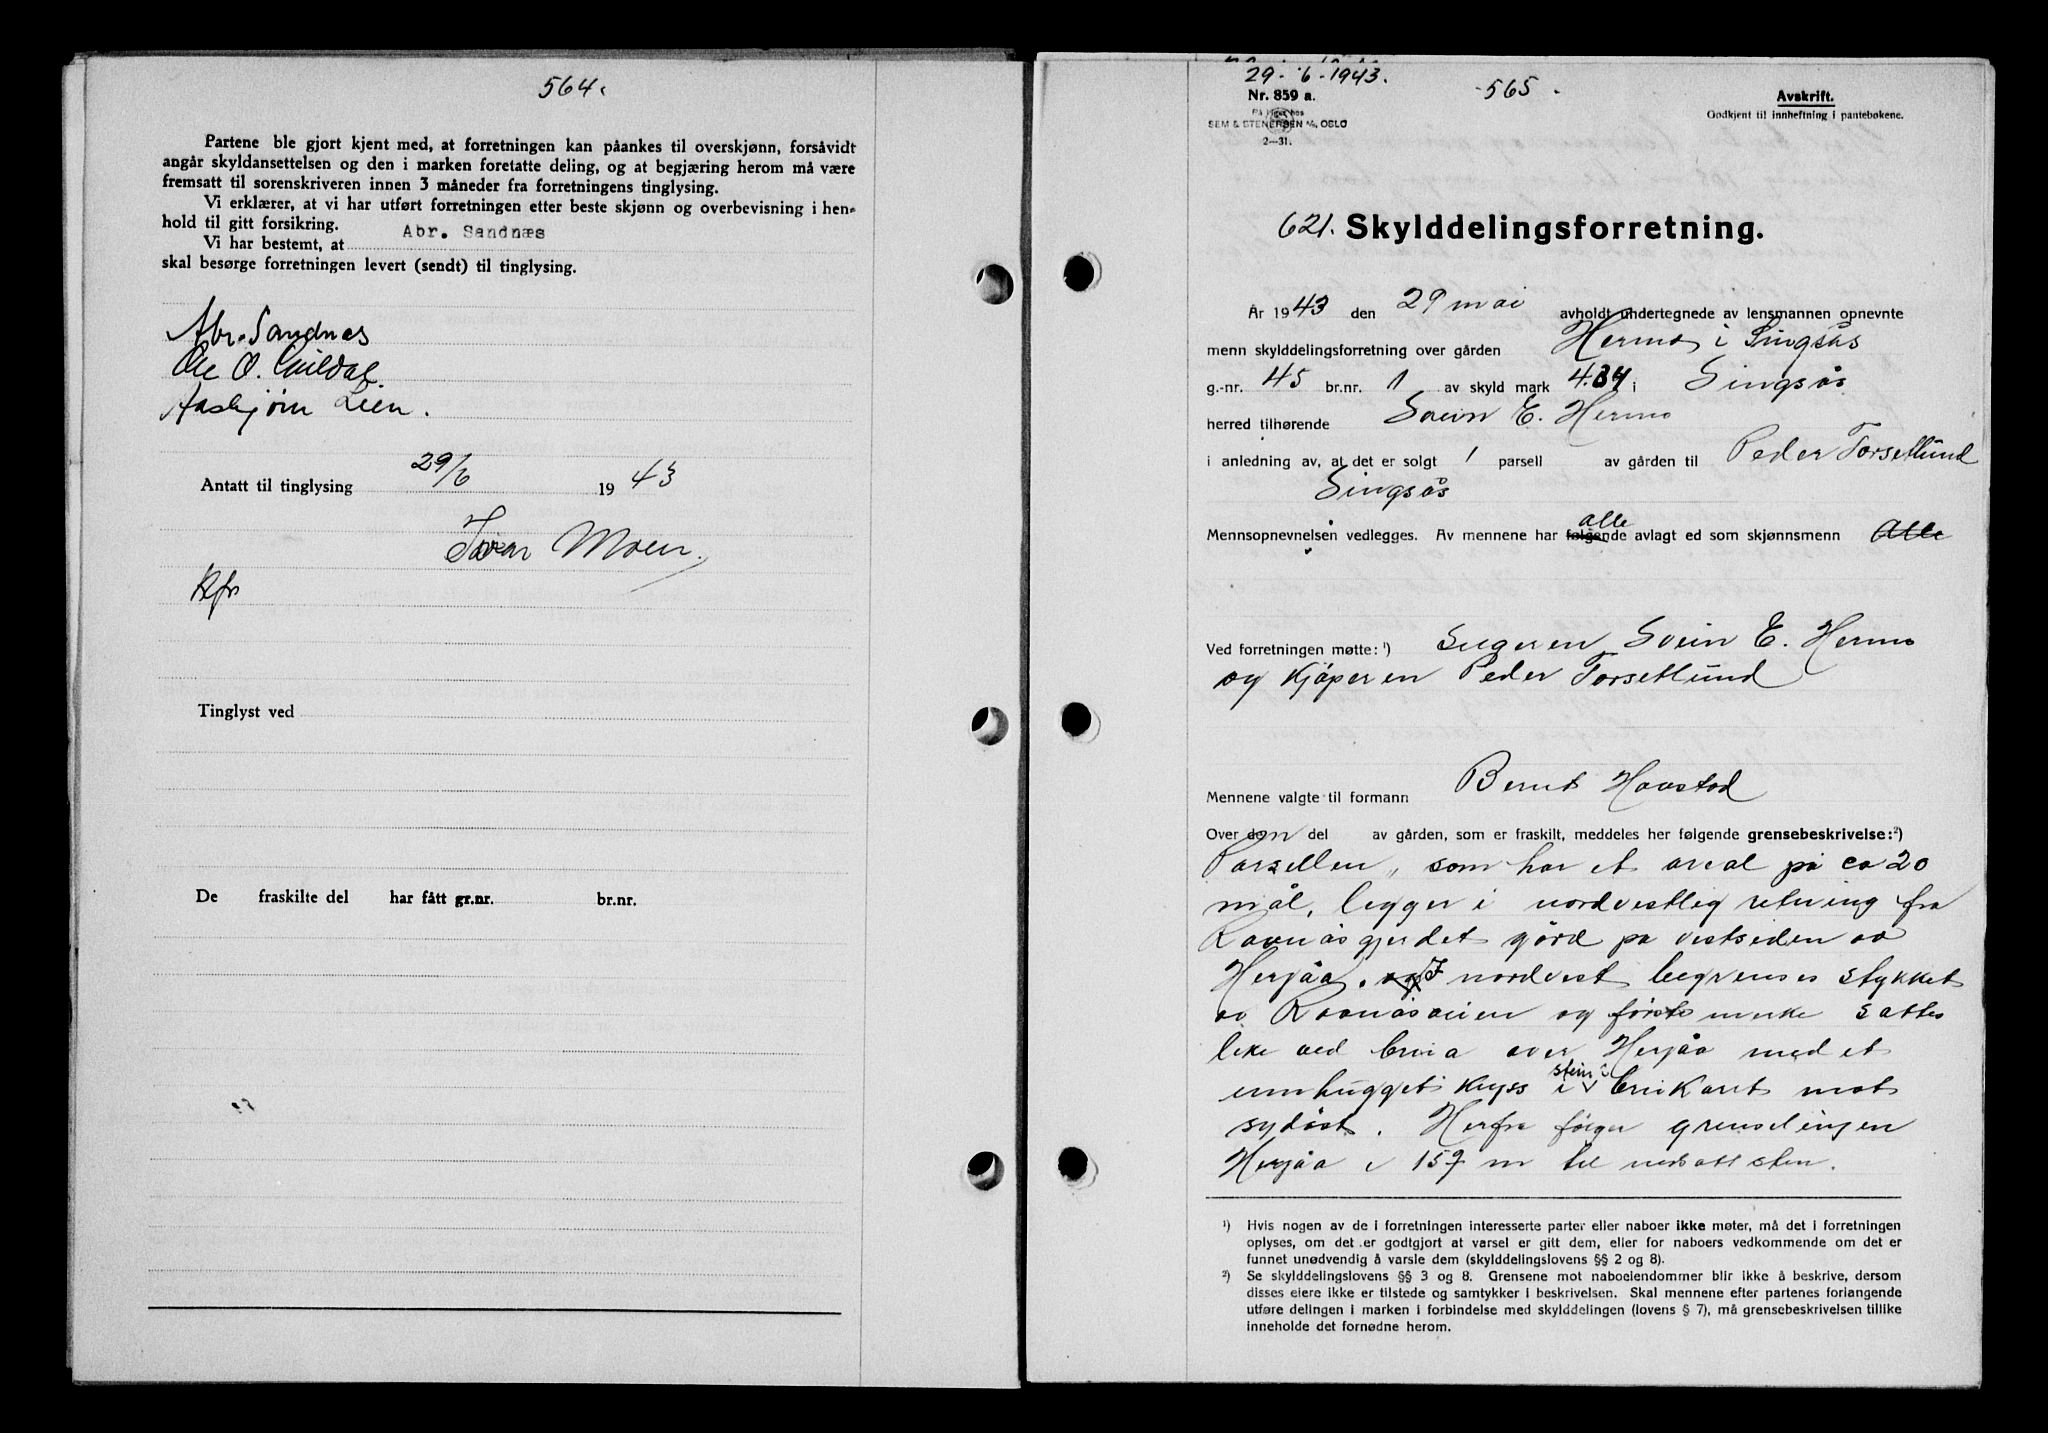 564.
Partene ble gjort kjent med, at forretningen kan påankes til overskjønn, forsåvidt
angår skyldansettelsen og den i marken foretatte deling, og at begjæring herom må være
fremsatt til sorenskriveren innen 3 måneder fra forretningens tinglysing.
Vi erklærer, at vi har utført forretningen etter beste skjønn og overbevisning i hen-
hold til gitt forsikring.
Vi har bestemt, at Abr. Sandnæs
skal besørge forretningen levert (sendt) til tinglysing.
Abr. Sandnæs
Ole O.
Aasbjørn Lien.
Antatt til tinglysing 29/6 1943
Ivar Moen.
Tinglyst ved
De fraskilte del har fått gr.nr. br.nr.
29-6-1943.
Nr. 859 a.
På lager hos
SEM & STENERSEN A/S, OSLO
2—31.
565.
Avskrift.
Godkjent til innheftning i pantebøkene.
621. Skylddelingsforretning.
År 1943 den 29 mai avholdt undertegnede av lensmannen opnevnte
menn skylddelingsforretning over gården Hermo i Singsås
g.-nr. 45 br.nr. 1 av skyld mark 4.84 i Singsås
herred tilhørende Svein E. Hermo
i anledning av, at det er solgt 1 parsell av gården til Peder Forsetlund
Singsås
Mennsopnevnelsen vedlegges. Av mennene har alle følgende avlagt ed som skjønnsmenn Alle
Ved forretningen møtte: ¹) Svein E. Hermo
og kjøperen Peder Forsetlund
Mennene valgte til formann Bernt Haustad
Over den del av gården, som er fraskilt, meddeles her følgende grensebeskrivelse:²)
Parsellen, som har et areal på ca 20
mål, legger i nordvestlig retning fra
Ramåsgjerdet gård på vestsiden av
Herjåa. og I nordvest begrenses stykket
av Ramåsveien og første merke sattes
like ved brua over Herjåa med et
innhugget kryss i stein i brukaret mot
sydøst. Herfra følger grenselinjen
Herjåa i 157 m til nedsatt sten.
¹) Hvis nogen av de i forretningen interesserte parter eller naboer ikke møter, må det i forretningen
oplyses, om det er godtgjort at varsel er gitt dem, eller for naboers vedkommende om det er
funnet unødvendig å varsle dem (skylddelingslovens §§ 2 og 8).
²) Se skylddelingslovens §§ 3 og 8. Grensene mot naboeiendommer blir ikke å beskrive, dersom
disses eiere ikke er tilstede og samtykker i beskrivelsen. Skal mennene efter partenes forlangende
utføre delingen i marken i forbindelse med skylddelingen (lovens § 7), må grensebeskrivelsen tillike
inneholde det fornødne herom.